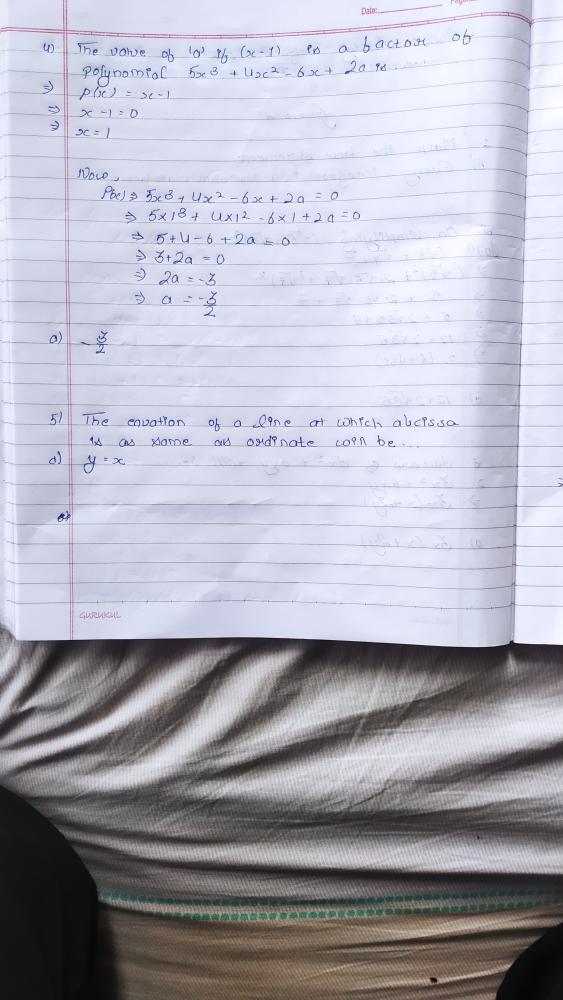 Date:
4) The value of 'a' if (x-1) is a factor of
polynomial 5x³ + 4x² - 6x + 2a is...
⇒ p(x) = x-1
⇒ x - 1 = 0
⇒ x = 1
Now,
P(x) ⇒ 5x³ + 4x² - 6x + 2a = 0
⇒ 5x1³ + 4x1² - 6x1 + 2a = 0
⇒ 5+4-6 + 2a = 0
⇒ 3+2a = 0
⇒ 2a = -3
⇒ a = -3/2
a) -3/2
5) The equation of a line at which abcissa
is as same as ordinate will be...
d) y = x
GURUKUL